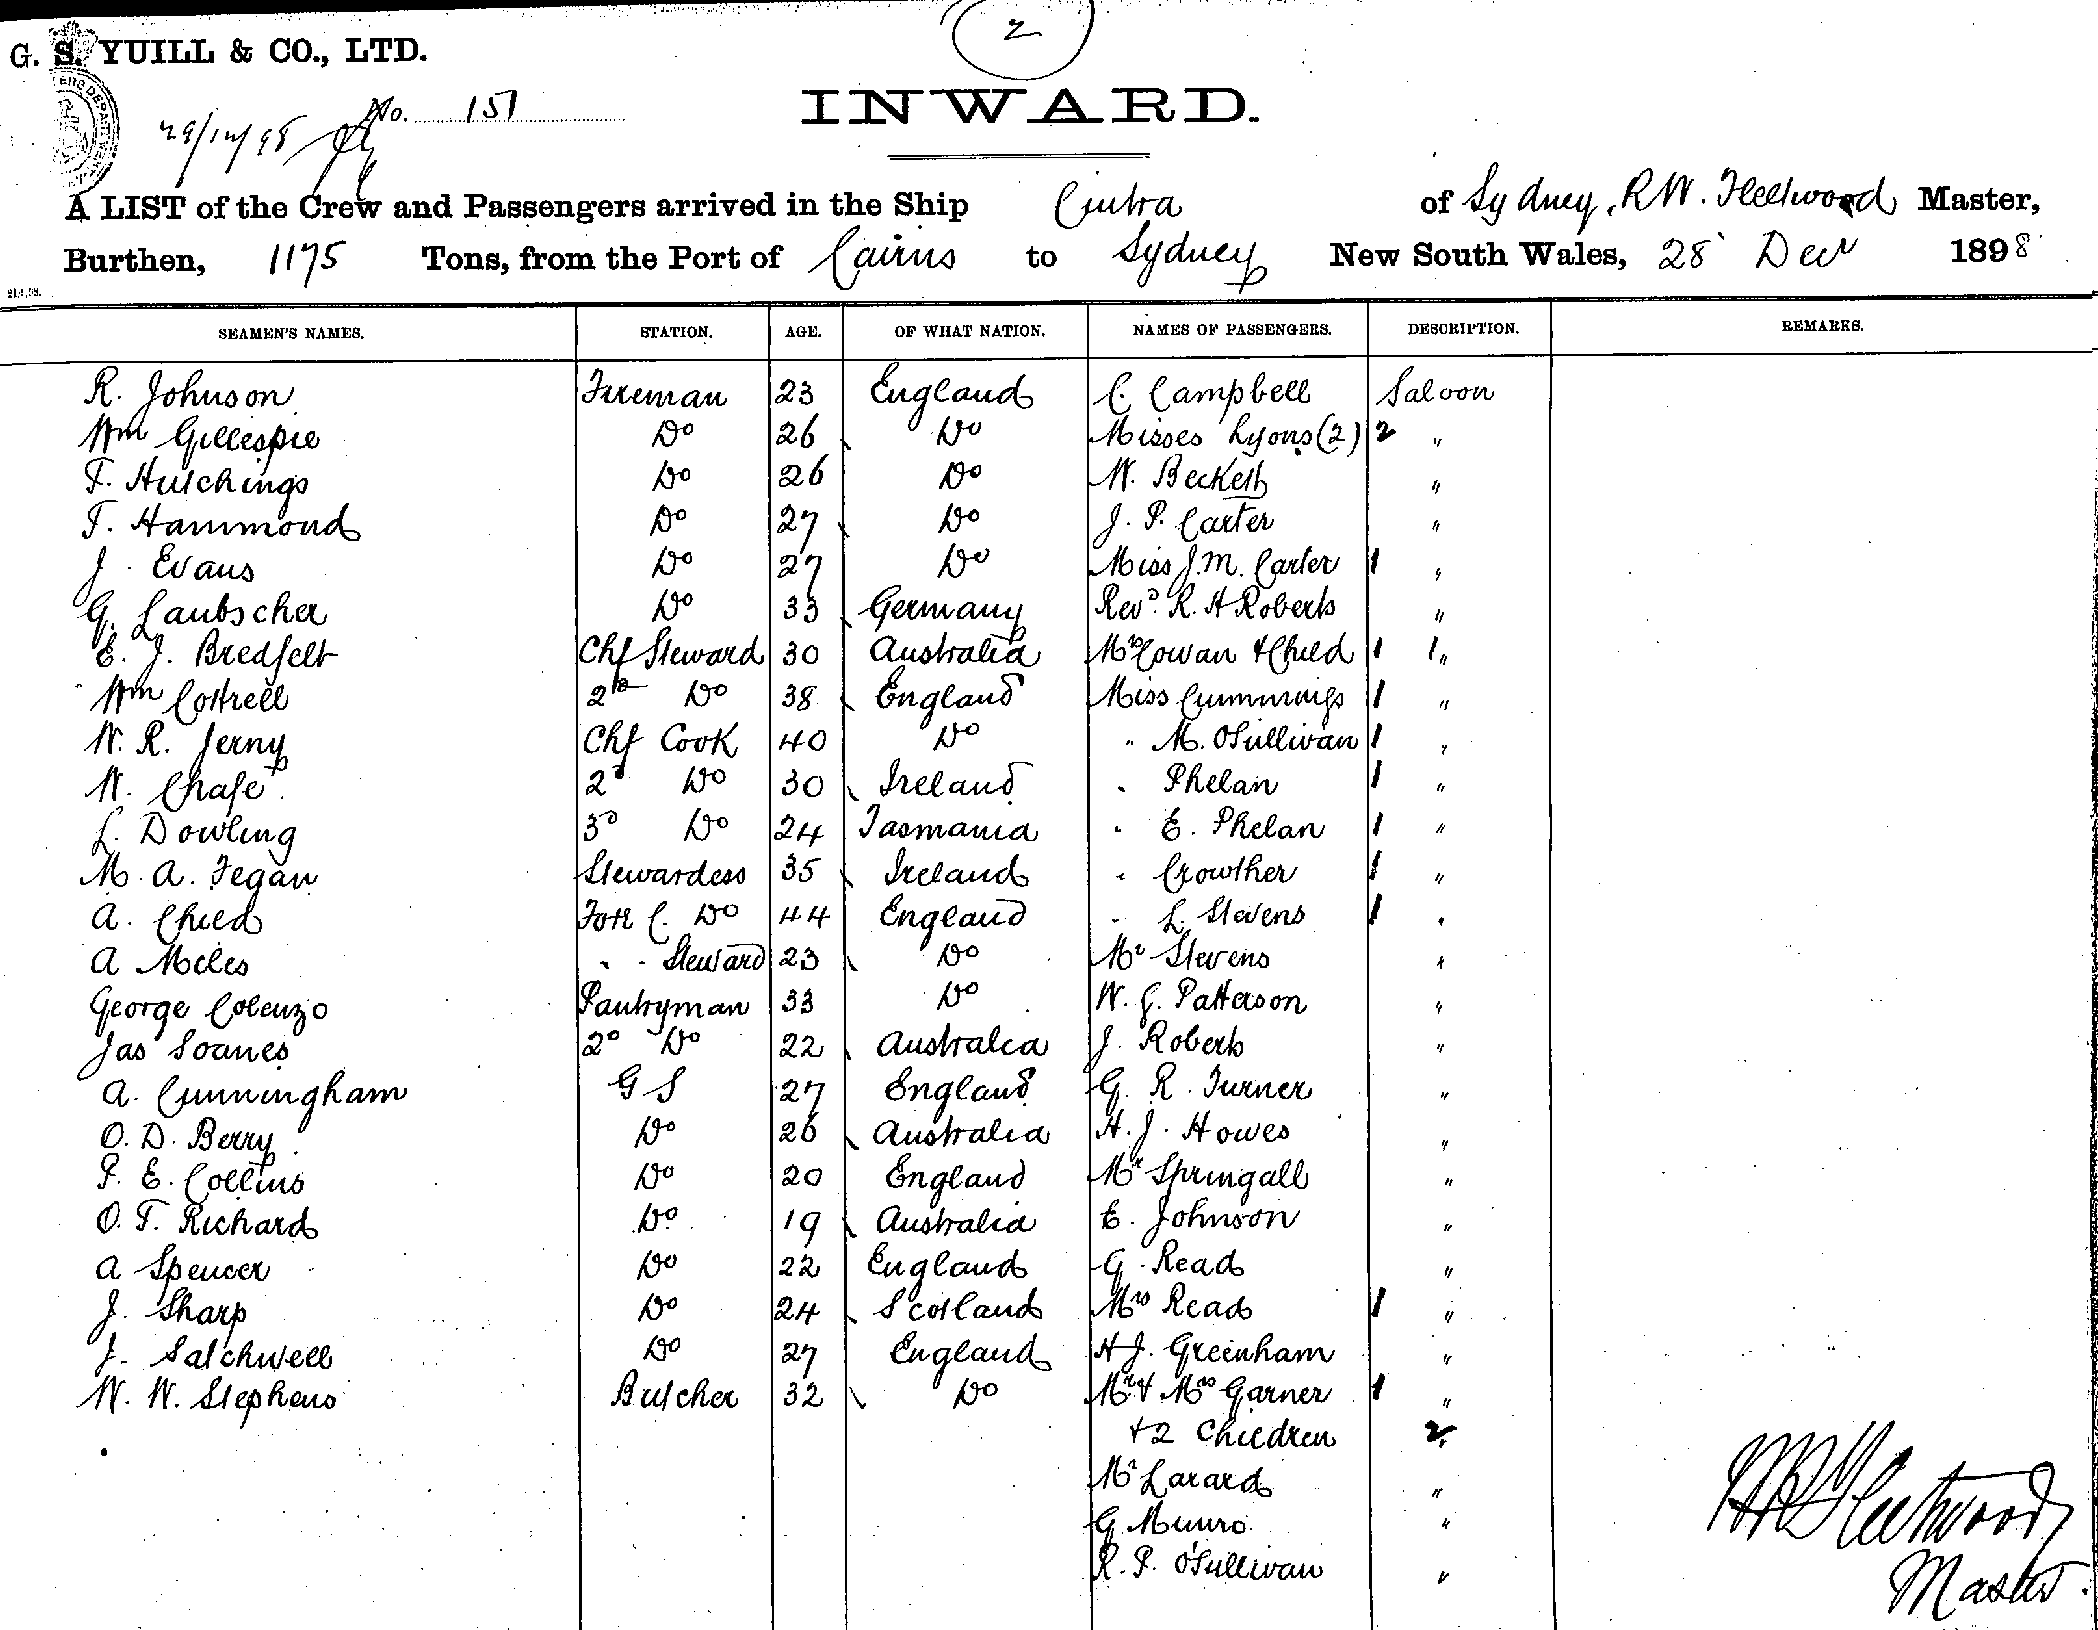 2
G. S. YUILL & CO., LTD.
No. 151
INWARD.
29/12/98
A LIST of the Crew and Passengers arrived in the Ship Cintra of Sydney, R W. Fleetwood Master,
Burthen, 1175 Tons, from the Port of Cairns to Sydney New South Wales, 28 Decr 1898
SEAMEN'S NAMES. STATION. AGE. OF WHAT NATION. NAMES OF PASSENGERS. DESCRIPTION. REMARKS.
R. Johnson Fireman 23 England C. Campbell Saloon
Wm Gillespie Do 26 Do Misses Lyons (2) 2 "
F. Hutchings Do 26 Do W. Beckett "
T. Hammond Do 27 Do J. P. Carter "
J. Evans Do 27 Do Miss J. M. Carter 1 "
G. Laubscher Do 33 Germany Revd. R. H Roberts "
E. J. Bredfelt Chf Steward 30 Australia Mrs Cowan & Child 1 1 "
Wm Cottrell 2nd Do 38 England Miss Cummings 1 "
W. R. Jerny Chf Cook 40 Do " M. O'Sullivan 1 "
W. Chafe 2d Do 30 Ireland " Phelan 1 "
L. Dowling 3d Do 24 Tasmania " E. Phelan 1 "
M. A. Fegan Stewardess 35 Ireland " Crowther 1 "
A. Child Fore C. Do 44 England " L. Stevens 1 "
A Miles " " Steward 23 Do Mr Stevens "
George Colenzo Pantryman 33 Do W. G. Patterson "
Jas Soanes 2d Do 22 Australia J. Roberts "
A. Cunningham G S 27 England G. R. Turner "
O. D. Berry Do 26 Australia H. J. Howes "
P. E. Collins Do 20 England Mr Springall "
O. T. Richard Do 19 Australia E. Johnson "
A Spencer Do 22 England G. Read "
J. Sharp Do 24 Scotland Mrs Read 1 "
J. Satchwell Do 27 England H J. Greenham "
W. W. Stephens Butcher 32 Do Mr & Mrs Garner 1 "
+ 2 Children 2 "
Mr Larard "
G Munro "
R. P. O'Sullivan "
R W Fleetwood
Master